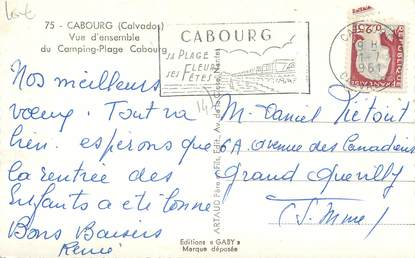 75 - CABOURG (Calvados)
Vue d'ensemble
du Camping-Plage Cabourg
CABOURG
SA PLAGE
SES FLEURS
SES FÊTES
REPUBLIQUE FRANCAISE
0,25
Nos meilleurs
vœux. Tout va
bien. espérons que
la rentrée des
Enfants a été bonne
Bons Baisers
René
M. Daniel Piétoit
6A avenue des Canadiens
Grand Quevilly
(S. Mme)
ARTAUD Père & Fils, Edit., Av. de la Close, Nantes
Editions "GABY"
Marque déposée